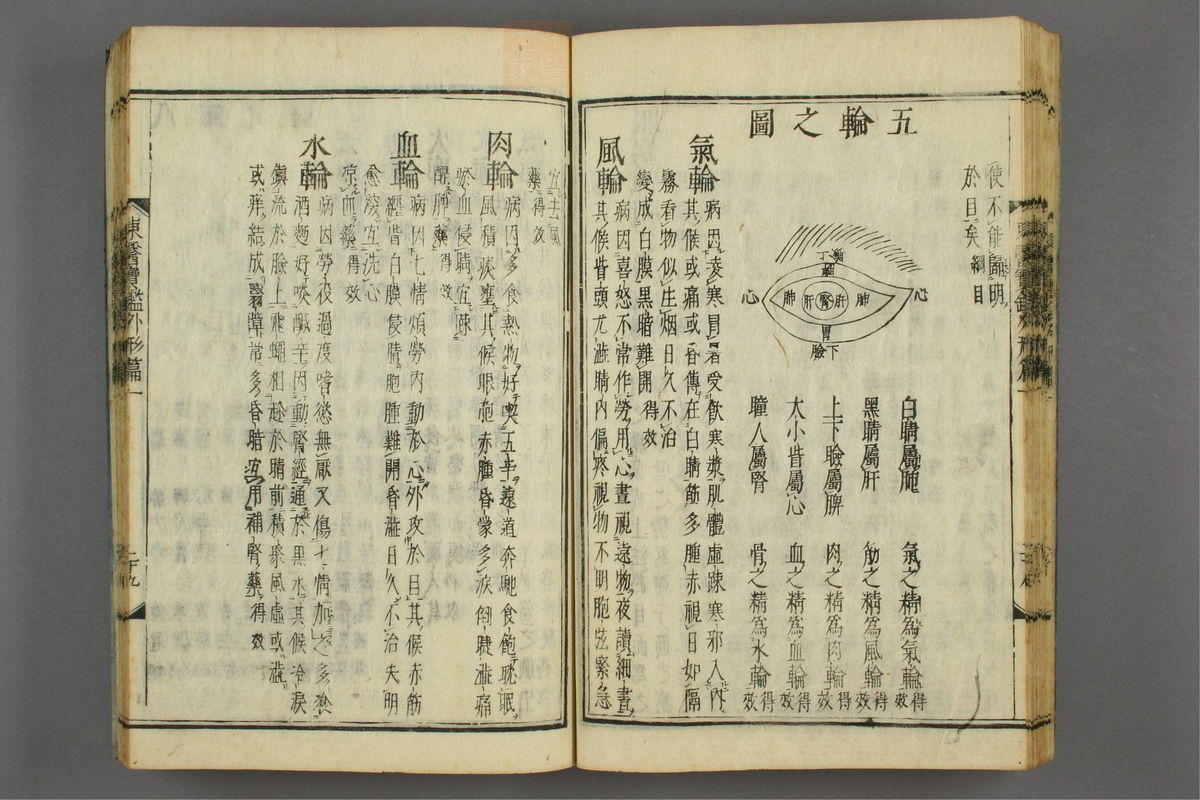 使不能歸明
於目矣綱目
五輪之圖
上瞼
胃
心
肺
肝
腎
肝
肺
心
胃
下瞼
白睛屬肺 氣之精爲氣輪得效
黑睛屬肝 筋之精爲風輪得效
上下瞼屬脾 肉之精爲肉輪得效
大小眥屬心 血之精爲血輪得效
瞳人屬腎 骨之精爲水輪得效
氣輪 病因凌寒冒暑受飮寒漿肌體虛踈寒邪入內
其候或痛或昏傳在白睛筋多腫赤視日如隔
霧看物似生烟日久不治
變成白膜黑暗難開得效
風輪 病因喜怒不常作勞用心晝視遠物夜讀細書
其候眥頭尤澁睛內偏疼視物不明胞弦緊急
宜去風
藥得效
肉輪 病因多食熱物好喫五辛遠道奔馳食飽耽眠
風積痰壅其候眼胞赤腫昏蒙多淚倒睫澁痛
瘀血侵睛宜踈
醒脾藥得效
血輪 病因七情煩勞內動於心外攻於目其候赤筋
經眥白膜侵睛胞腫難開昏澁日久不治失明
愈深宜洗心
凉血藥得效
水輪 病因勞役過度嗜慾無厭又傷七情加之多飡
酒麪好啖醎辛因動腎經通於黑水其候冷淚
鎭流於臉上飛蠅相趁於睛前積聚風虛或澁
或痒結成翳障常多昏暗宜用補腎藥得效
東醫寶鑑外形篇一
二十九